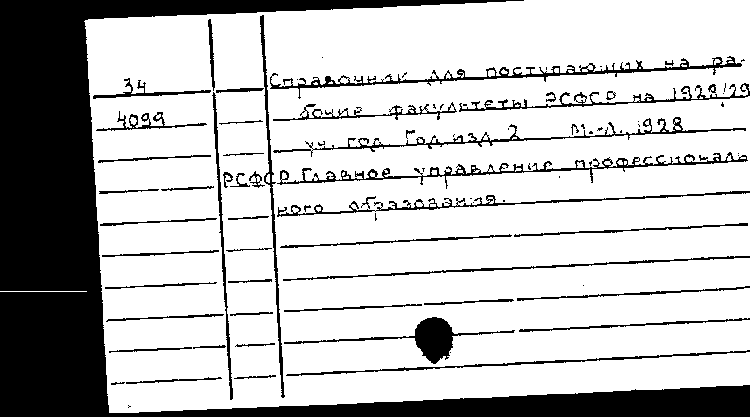 34
4099
Справочник для поступающих на ра-
бочие факультеты РСФСР на 1928/29
уч. год. Год изд. 2 М.-Л., 1928
РСФСР. Главное управление профессиональ
ного образования.